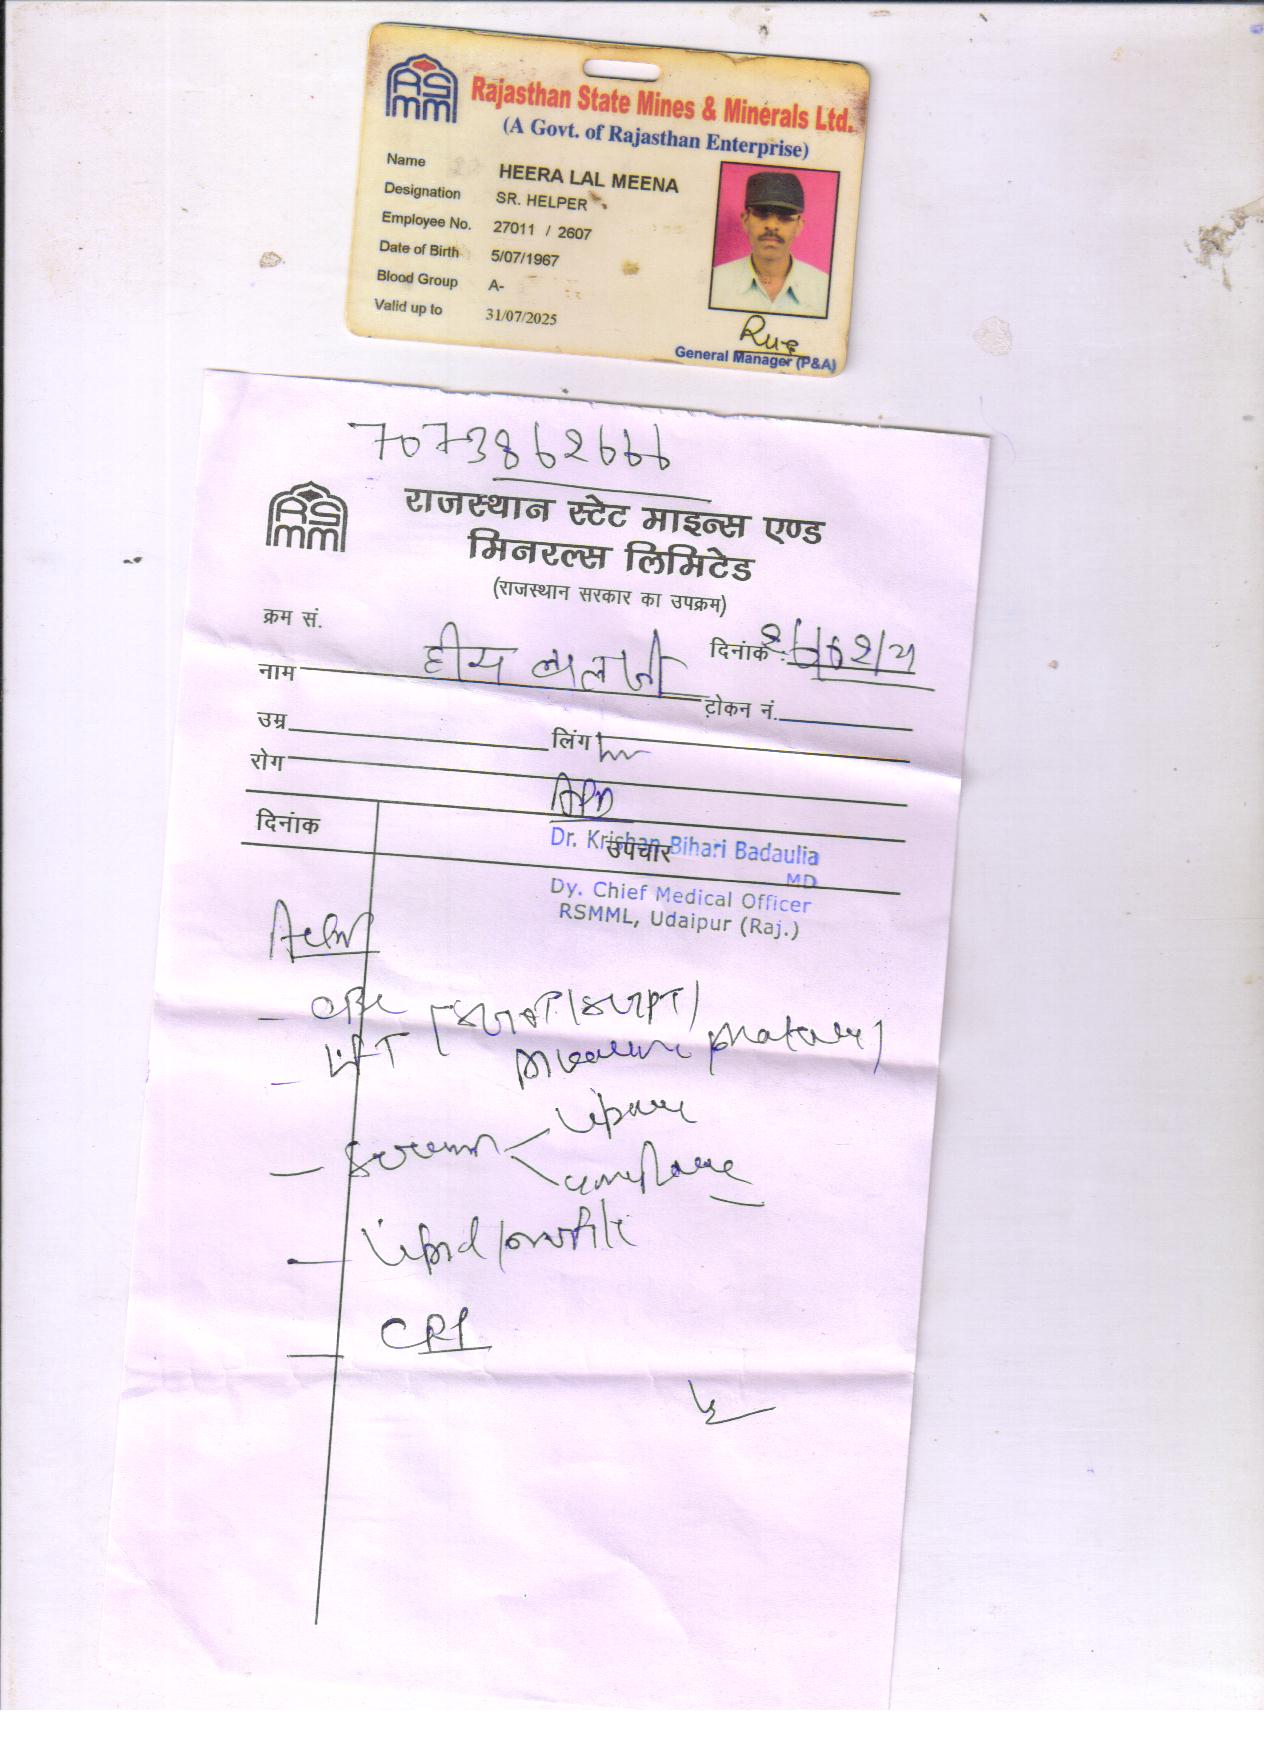 RS
mm
Rajasthan State Mines & Minerals Ltd.
(A Govt. of Rajasthan Enterprise)
Name HEERA LAL MEENA
Designation SR. HELPER
Employee No. 27011 / 2607
Date of Birth 5/07/1967
Blood Group A-
Valid up to 31/07/2025
General Manager (P&A)
RS
mm
राजस्थान स्टेट माइन्स एण्ड
मिनरल्स लिमिटेड
(राजस्थान सरकार का उपक्रम)
क्रम सं.
दिनांक :
नाम हीरा लाल जी
टोकन नं.
उम्र लिंग
रोग
दिनांक उपचार
Dr. Krishan Bihari Badaulia
MD
Dy. Chief Medical Officer
RSMML, Udaipur (Raj.)
- CBC
- LFT [SGOT/SGPT/
- Serum Lipase
amylase
- Lipid profile